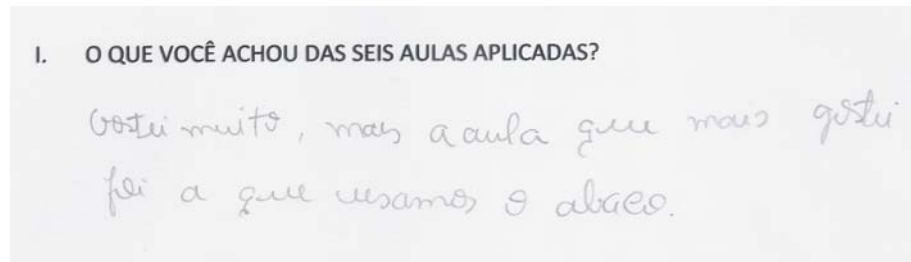 I. O QUE VOCÊ ACHOU DAS SEIS AULAS APLICADAS?
Gostei muito, mais a aula que mais gostei
foi a que usamos o abaco.